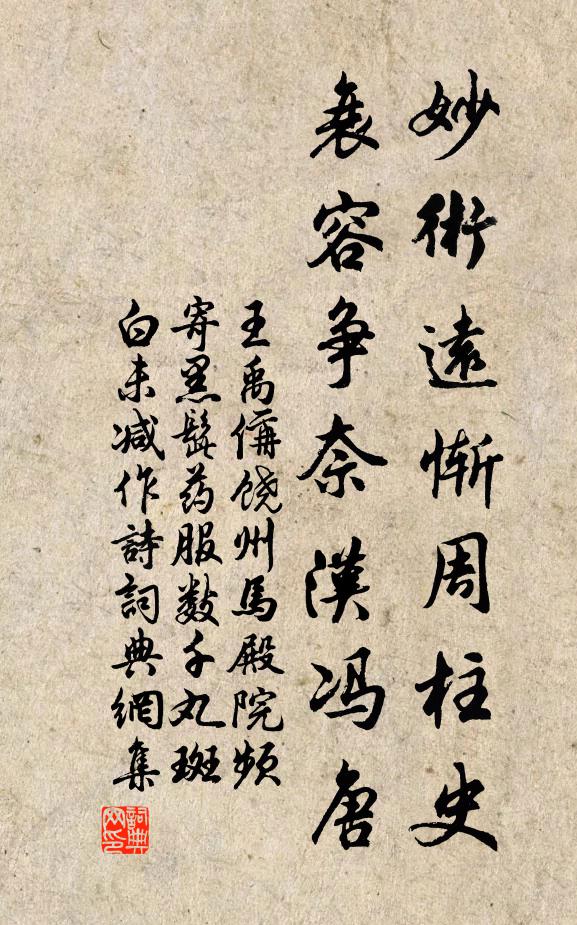 妙術遠慚周柱史
衰容争奈漢冯唐
王禹偁饶州馬殿院频
寄黑髭药服数千丸斑
白未减作詩詞典網集
詞典网印